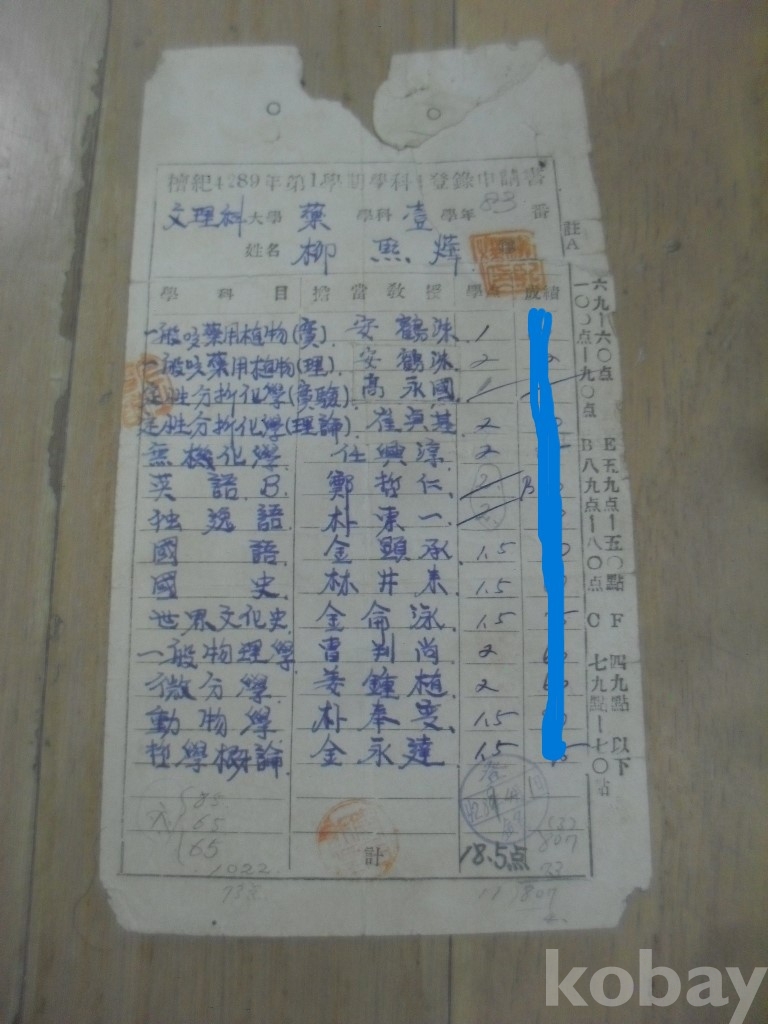 檀紀4289年第1學期學科登錄申請書
文理科大學 藥 學科 壹 學年 83 番
姓名 柳 熙 燁
學科目 擔當教授 學点 成績
一般及藥用植物(實) 安鶴洙 1
一般及藥用植物(理) 安鶴洙 2
定性分析化學(實驗) 高永國 1
定性分析化學(理論) 崔貞基 2
無機化學 任興淳 2
英語 B. 鄭哲仁 2 B
独逸語 朴溧一 2
國語 金顕承 1.5
國史 林井来 1.5
世界文化史 金侖泳 1.5
一般物理學 曺判尚 2
微分學 姜鍾植 2
動物學 朴奉燮 1.5
哲學槪論 金永達 1.5
計 18.5点
85
65
65
1022
807
17 807
註
A 一〇〇点-九〇点 B 八九点-八〇点 C 七九點-七〇點
六九-六〇点 E 五九点-五〇點 F 四九點以下
kobay